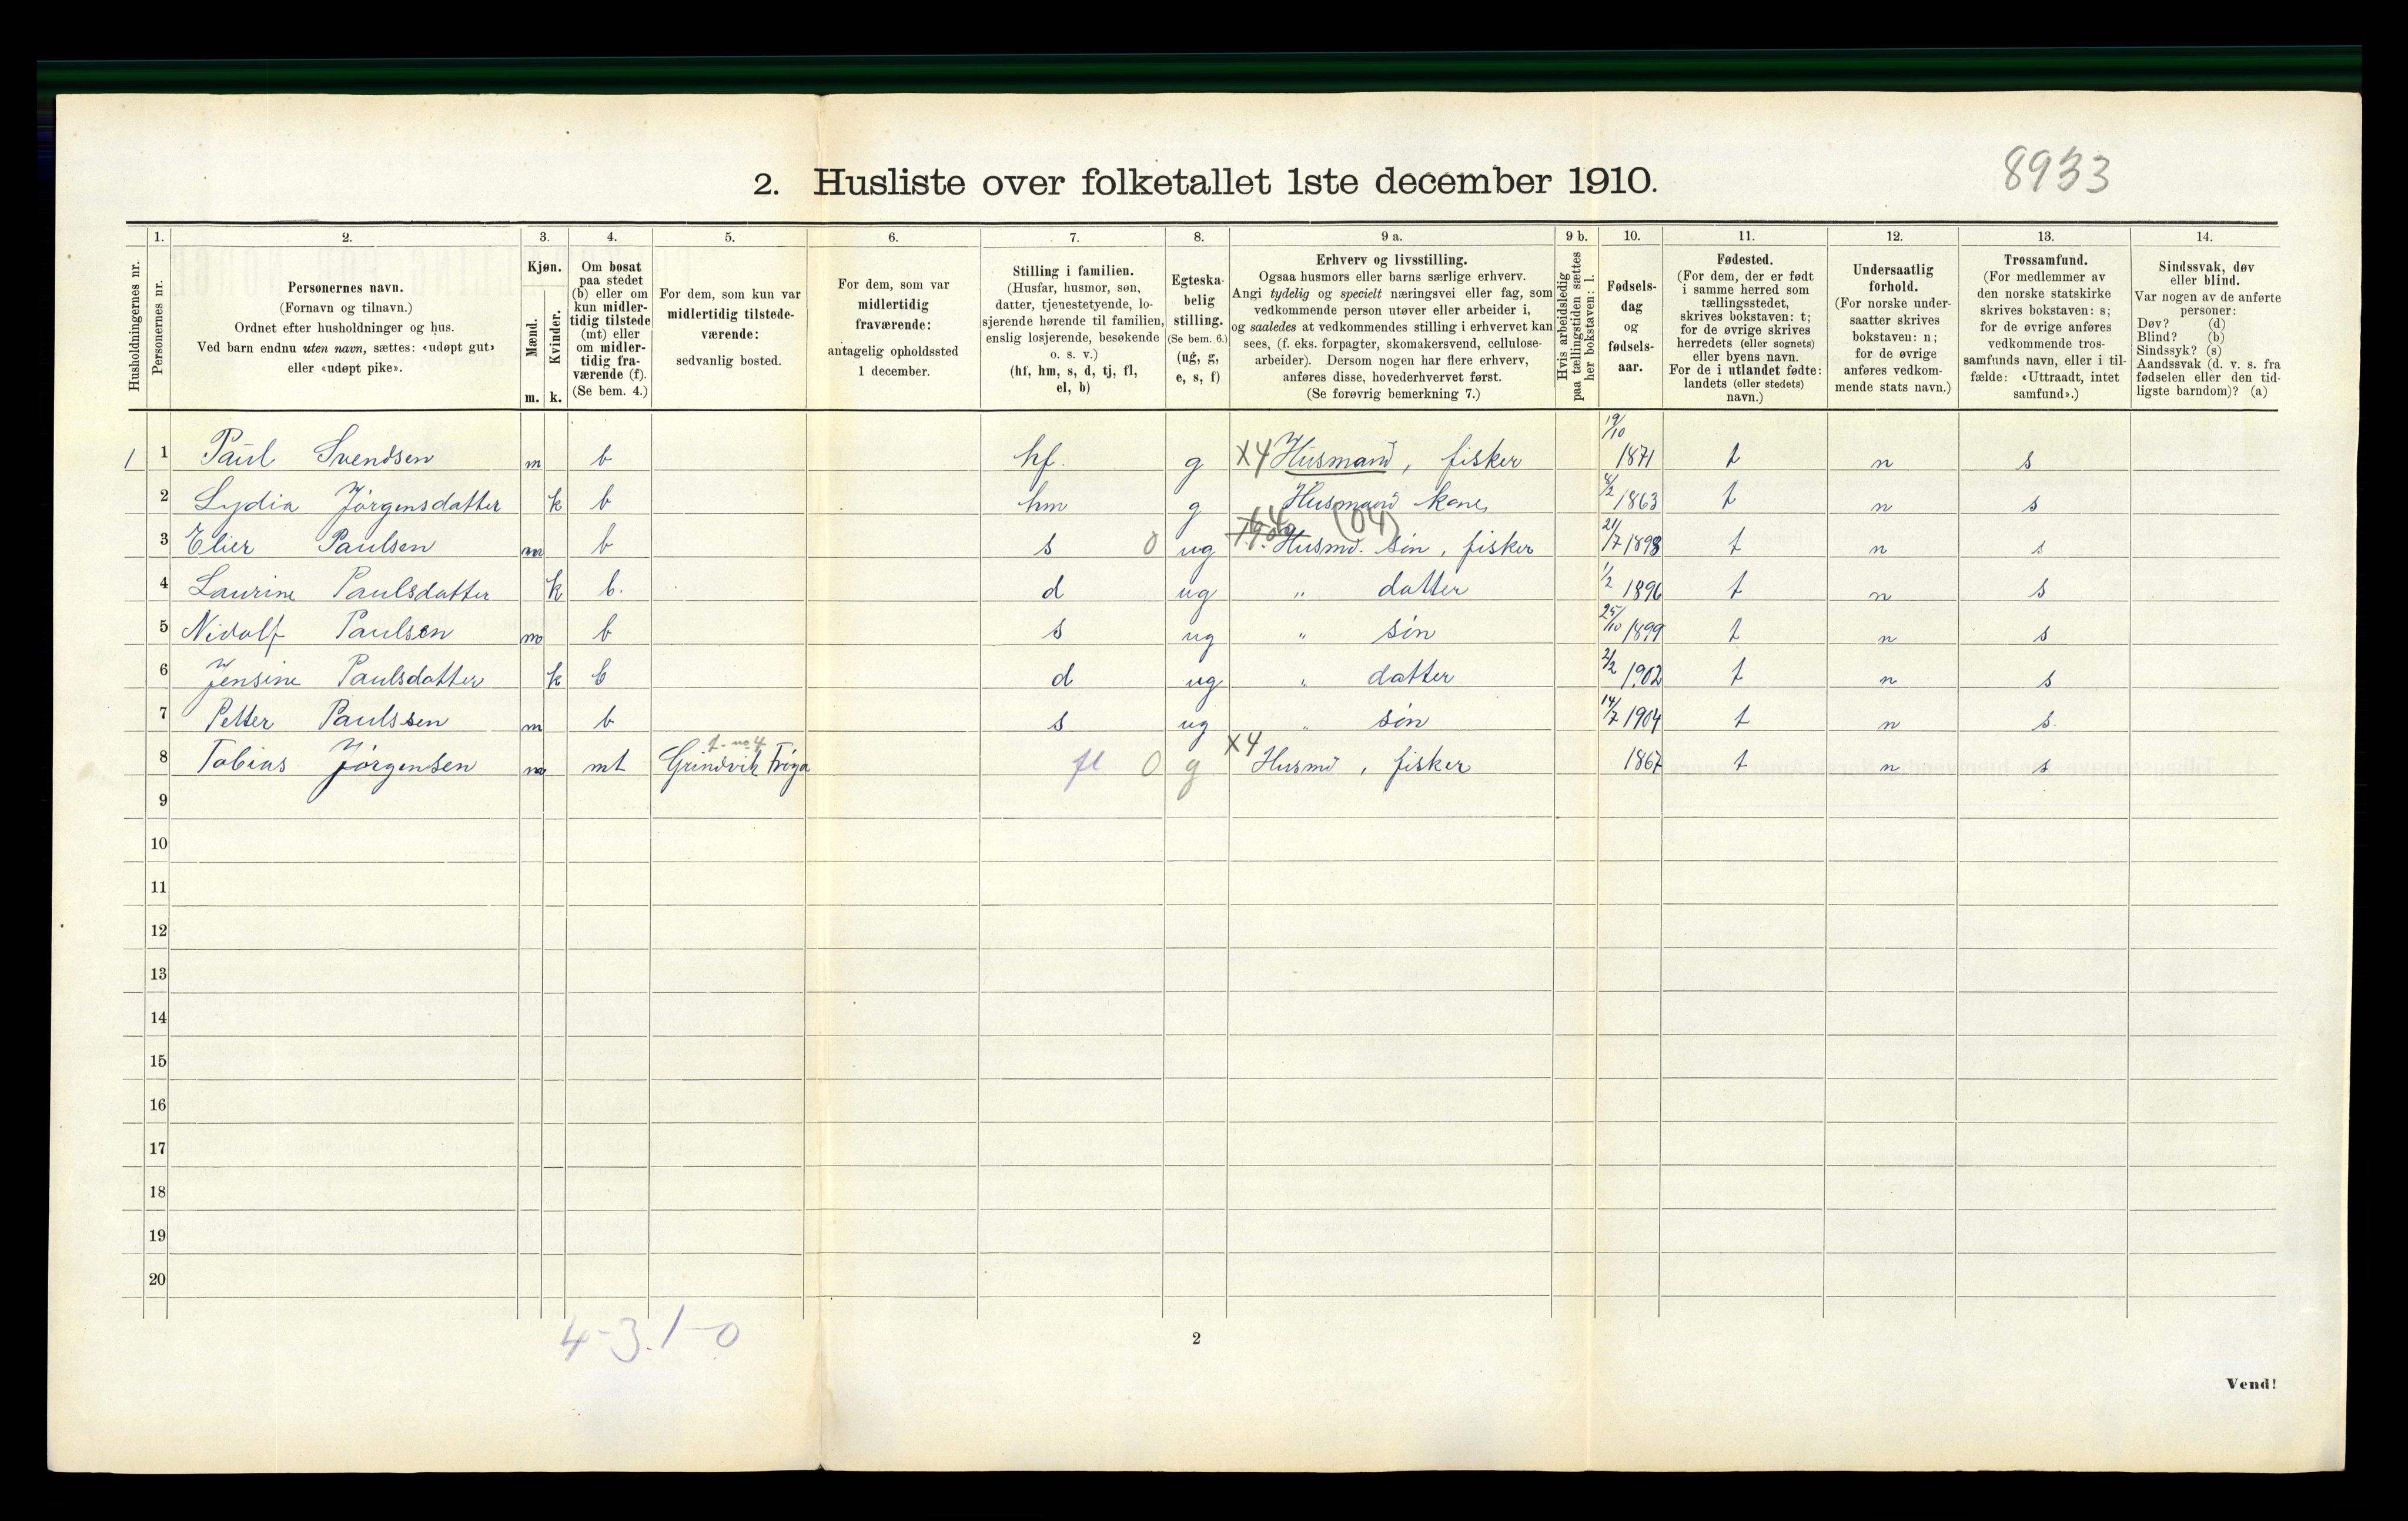 8933
2. Husliste over folketallet 1ste december 1910.
1. 2. 3. 4. 5. 6. 7. 8. 9 a. 9 b. 10. 11. 12. 13. 14.
Husholdningernes nr.
Personernes nr.
Personernes navn.
(Fornavn og tilnavn.)
Ordnet efter husholdninger og hus.
Ved barn endnu uten navn, sættes: «udøpt gut»
eller «udøpt pike».
Kjøn.
Mænd.
Kvinder.
m. k.
Om bosat
paa stedet
(b) eller om
kun midler-
tidig tilstede
(mt) eller
om midler-
tidig fra-
værende (f).
(Se bem. 4.)
For dem, som kun var
midlertidig tilstede-
værende:
sedvanlig bosted.
For dem, som var
midlertidig
fraværende:
antagelig opholdssted
1 december.
Stilling i familien.
(Husfar, husmor, søn,
datter, tjenestetyende, lo-
sjerende hørende til familien,
enslig losjerende, besøkende
o. s. v.)
(hf, hm, s, d, tj, fl,
el, b)
Egteska-
belig
stilling.
(Se bem. 6.)
(ug, g,
e, s, f)
Erhverv og livsstilling.
Ogsaa husmors eller barns særlige erhverv.
Angi tydelig og specielt næringsvei eller fag, som
vedkommende person utøver eller arbeider i,
og saaledes at vedkommendes stilling i erhvervet kan
sees, (f. eks. forpagter, skomakersvend, cellulose-
arbeider). Dersom nogen har flere erhverv,
anføres disse, hovederhvervet først.
(Se forøvrig bemerkning 7.)
Hvis arbeidsledig
paa tællingstiden sættes
her bokstaven: l.
Fødsels-
dag
og
fødsels-
aar.
Fødested.
(For dem, der er født
i samme herred som
tællingsstedet,
skrives bokstaven: t;
for de øvrige skrives
herredets (eller sognets)
eller byens navn.
For de i utlandet fødte:
landets (eller stedets)
navn.)
Undersaatlig
forhold.
(For norske under-
saatter skrives
bokstaven: n;
for de øvrige
anføres vedkom-
mende stats navn.)
Trossamfund.
(For medlemmer av
den norske statskirke
skrives bokstaven: s;
for de øvrige anføres
vedkommende tros-
samfunds navn, eller i til-
fælde: «Uttraadt, intet
samfund».)
Sindssvak, døv
eller blind.
Var nogen av de anførte
personer:
Døv? (d)
Blind? (b)
Sindssyk? (s)
Aandssvak (d. v. s. fra
fødselen eller den tid-
ligste barndom)? (a)
1 1 Paul Svendsen m b hf. g X4 Husmand, fisker 19/10 1871 t n s
2 Lydia Jørgensdatter k b hm g Husmand kone 8/2 1863 t n s
3 Elier Paulsen m b s 0 ug (04) Husmd. søn, fisker 21/7 1893 t n s
4 Laurine Paulsdatter k b. d ug " datter 1/2 1896 t n s
5 Nidolf Paulsen m b s ug " søn 25/10 1899 t n s
6 Jensine Paulsdatter k b d ug " datter 2/2 1902 t n s
7 Petter Paulssen m b s ug " søn 14/7 1904 t n s.
8 Tobias Jørgensen m mt Grindvik Frøya fl 0 g X4 Husmd, fisker 1867 t n s
9
10
11
12
13
14
15
16
17
18
19
20
4-3. 1-0
2
Vend!